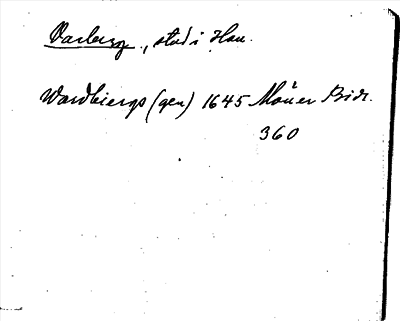 Varberg, stad i Hall.
Wardbiergs (gen) 1645 Månér Bidr.
360